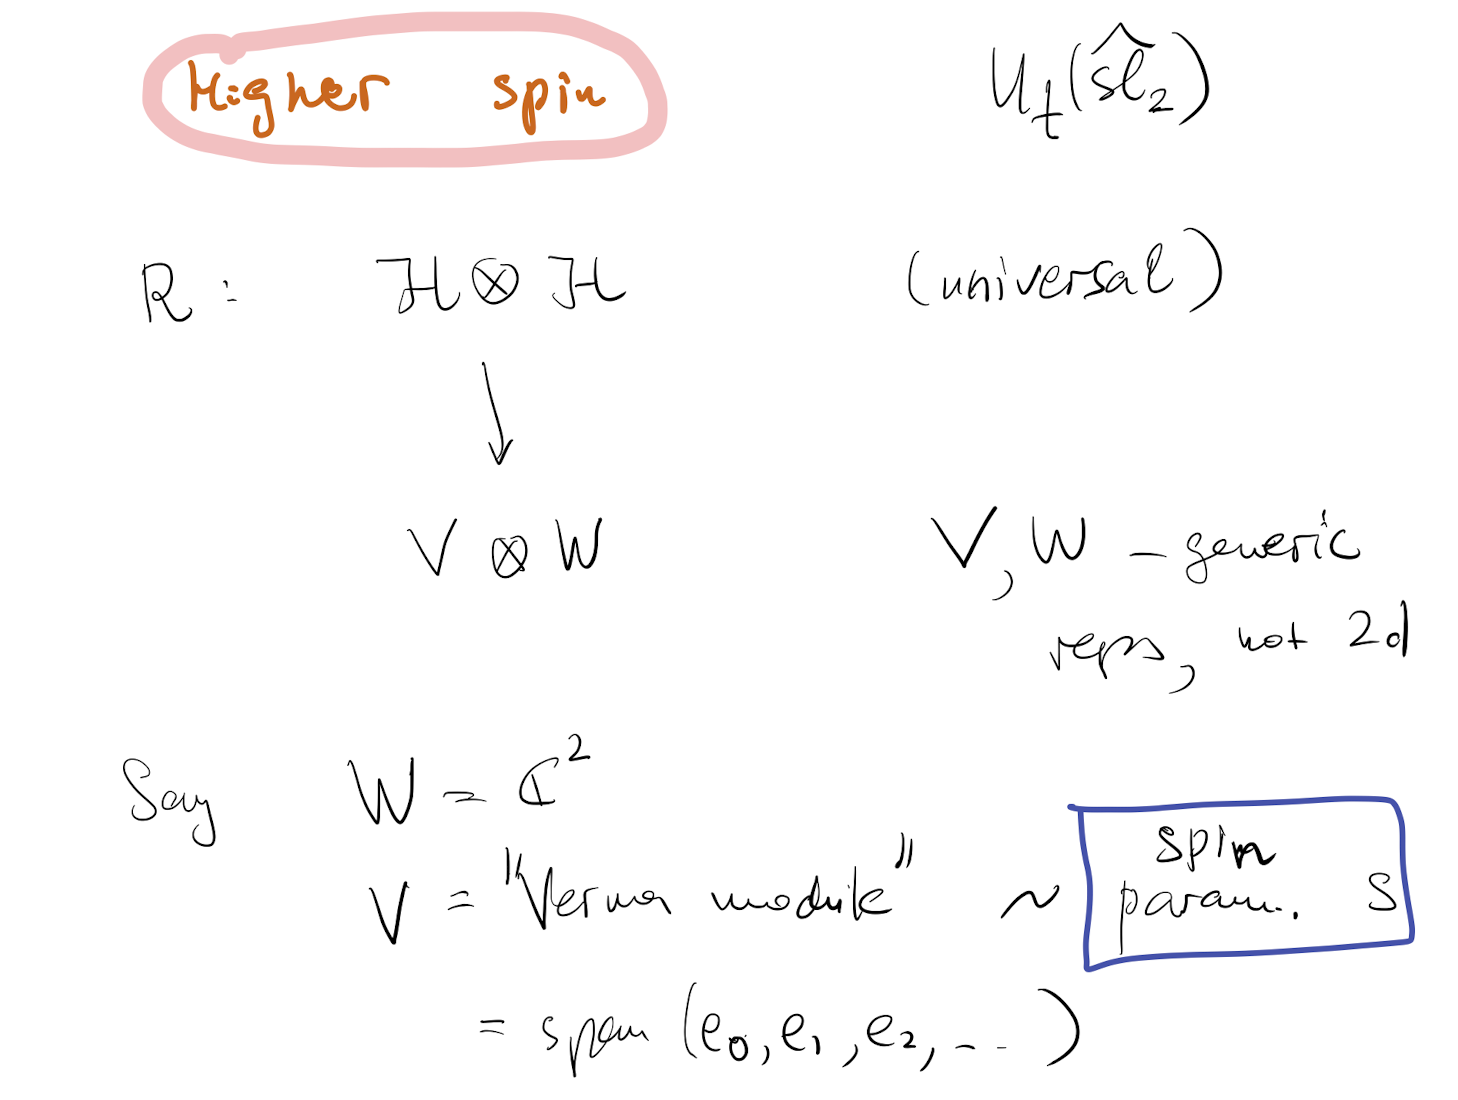 Higher spin U_t(\hat{sl}_2)
R : H ⊗ H (universal)
↓
V ⊗ W V, W – generic
reps, not 2d
Say W = ℂ²
V = "Verma module" ~ spin param. s
= span (e₀, e₁, e₂, ...)